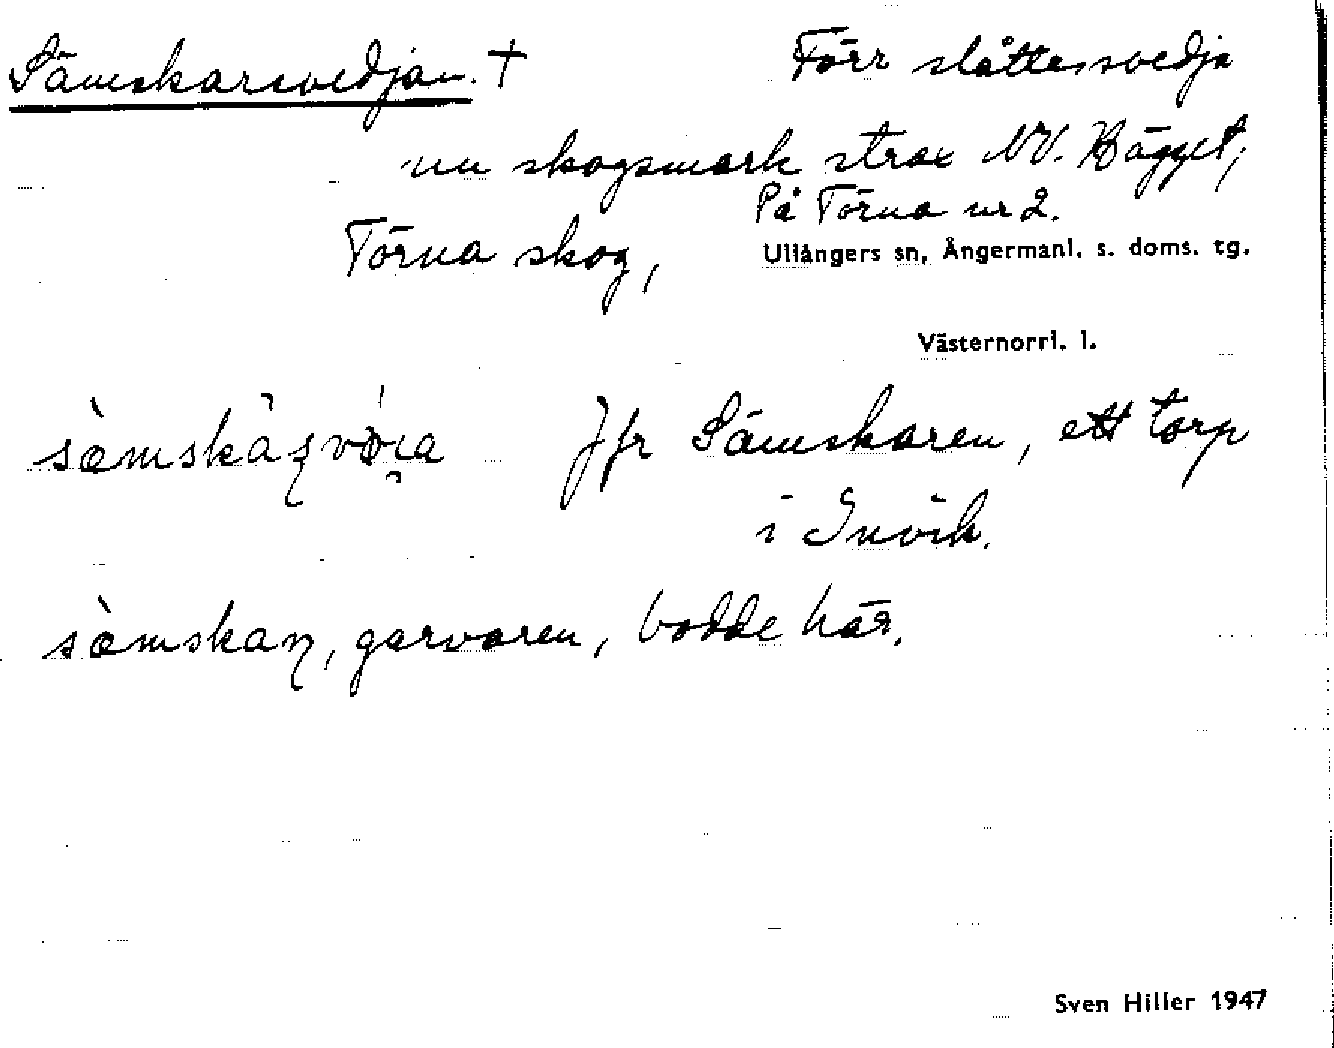 Sämskarsvedjan. † Förr slåttessvedja
nu skogsmark strax NV. Hägget,
På Törna nr 2.
Törna skog,
Ullångers sn, Ångermanl. s. doms. tg.
Västernorrl. l.
Jfr Sämskaren, ett torp
i Invik.
sæmskaɳ, garvaren, bodde här.
Sven Hiller 1947